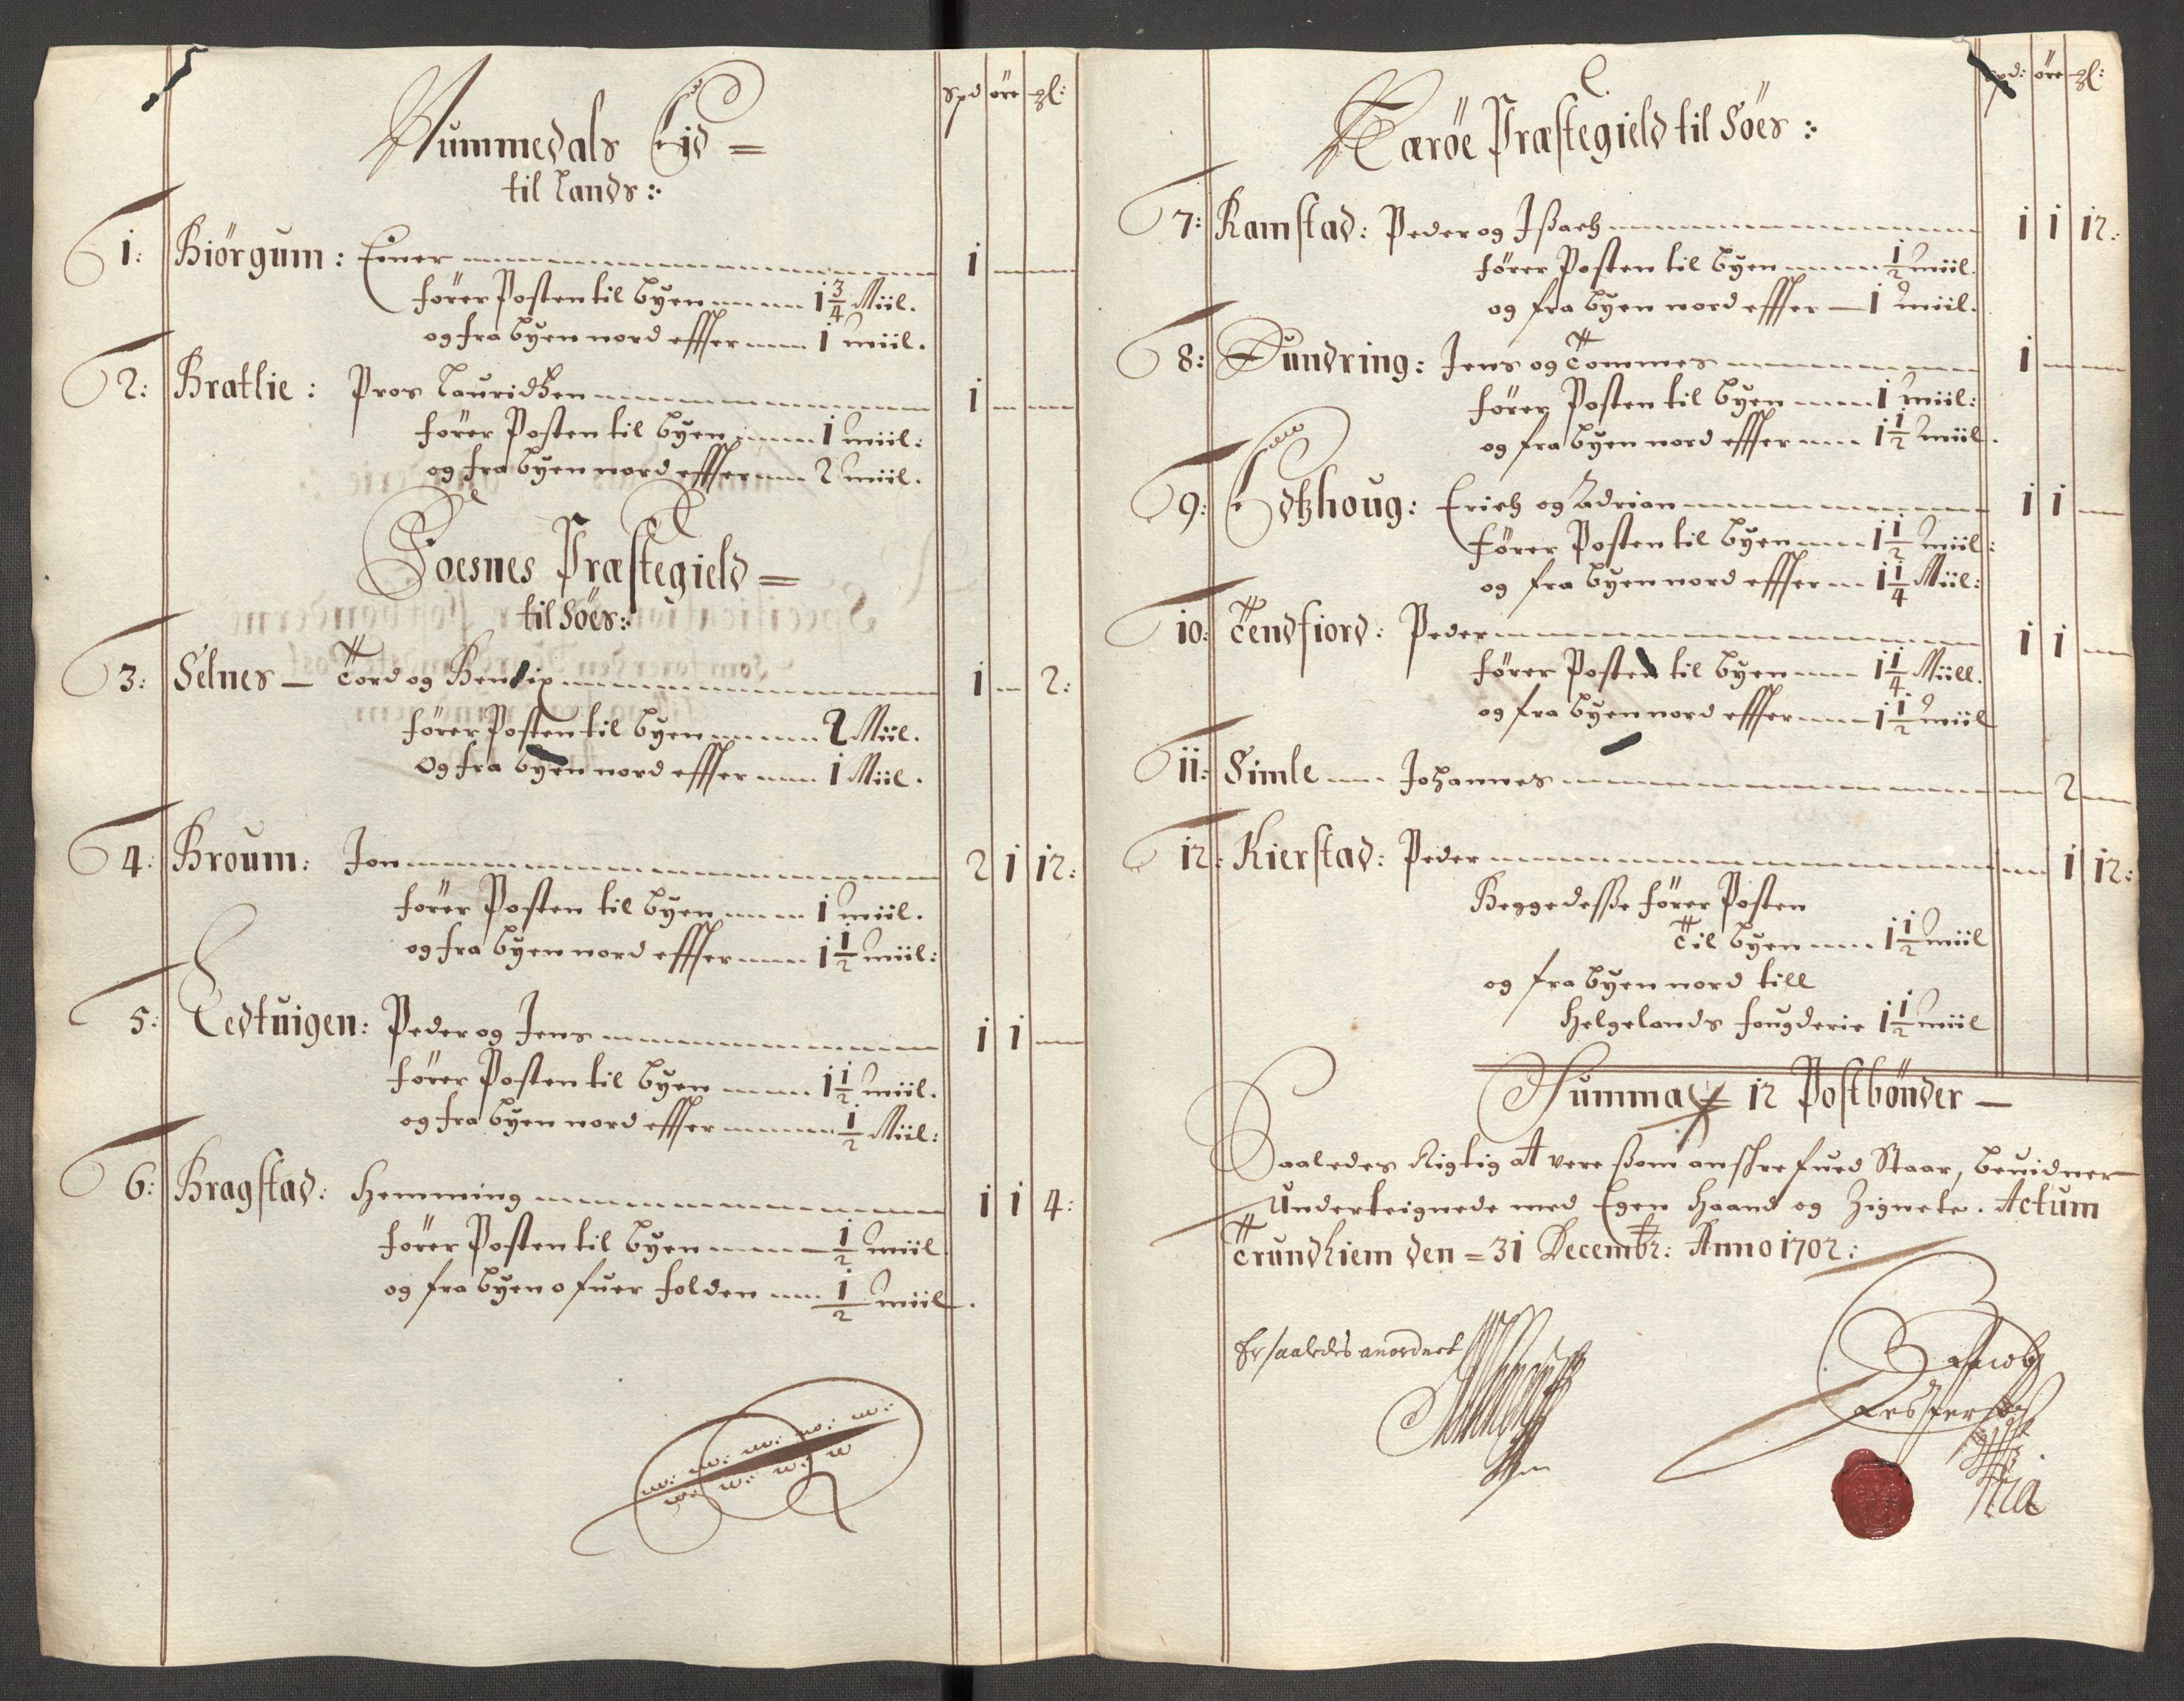 spd øre ℳl:
Nummedals Eid =
til Lands:
1: Biörgum: Einer 1
fører Posten til byen 1 3/4 Miil.
og fra byen nord effter 1 miil.
2: Bratlie: Pros Lauridßen 1
fører Posten til byen 1 miil:
og fra byen nord effter 2 miil.
Foesnes Præstegield =
til Söes:
3: Selnes – Tord og 1 2:
fører Posten til byen 2 Miil.
Og fra byen nord effter 1 Miil.
4: Broum: Jon 2 1 12:
fører Posten til byen 1 miil.
og fra byen nord effter 1 1/2 miil:
5: Tedtuigen: Peder og Jens 1 1
fører Posten til byen 1 1/2 miil.
og fra byen nord effter 1/2 Miil:
6: Bragstad: Hemming 1 1 4:
fører Posten til byen 1/2 miil
og fra byen ofuer folden 1/2 miil.
spd: øre ℳl:
Nærøe Præstegield til Söes:
7: Ramstad: Peder og Ißach 1 1 12:
fører Posten til byen 1/2 miil.
og fra byen nord effter – 1 miil.
8: Dundring: Jens og Tommes 1
fører Posten til byen 1 miil:
og fra byen nord effter 1 1/2 miil.
9: Edtzhoug: Erich og Adrian 1 1
fører Posten til byen 1 1/2 miil:
og fra byen nord effter 1 1/4 Miil:
10: Tendfiord: Peder 1 1
fører Posten til byen 1 1/4 Miill.
og fra byen nord effter 1 1/2 miil
11: Simle Johannes 2
12: Kierstad: Peder 1 12:
Begge desße fører Posten
Til byen 1 1/2 miil
og fra byen nord till
Helgelands fougderie 1 1/2 miil
Summa 12 Postbønder –
Saaledes Rigtig at vere ßom anskrefued Staar, beuidner
Underteignede med Egen Haand og Zignete. Actum
Trundhiem den = 31 Decembr: Anno 1702:
Er saaledes anordnet